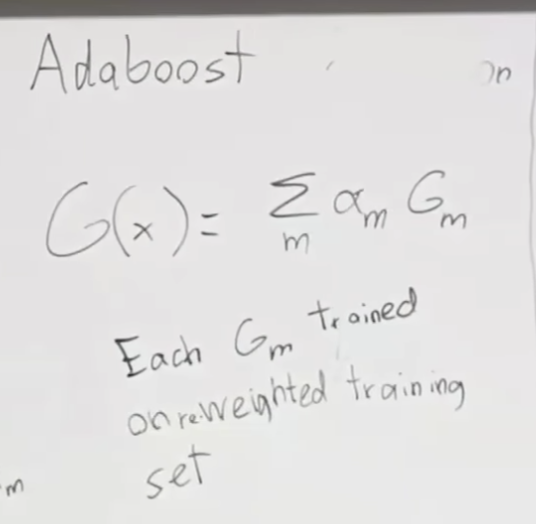 Adaboost
G(x) = Σ αₘ Gₘ
m
Each Gₘ trained
on re-weighted training
set
m